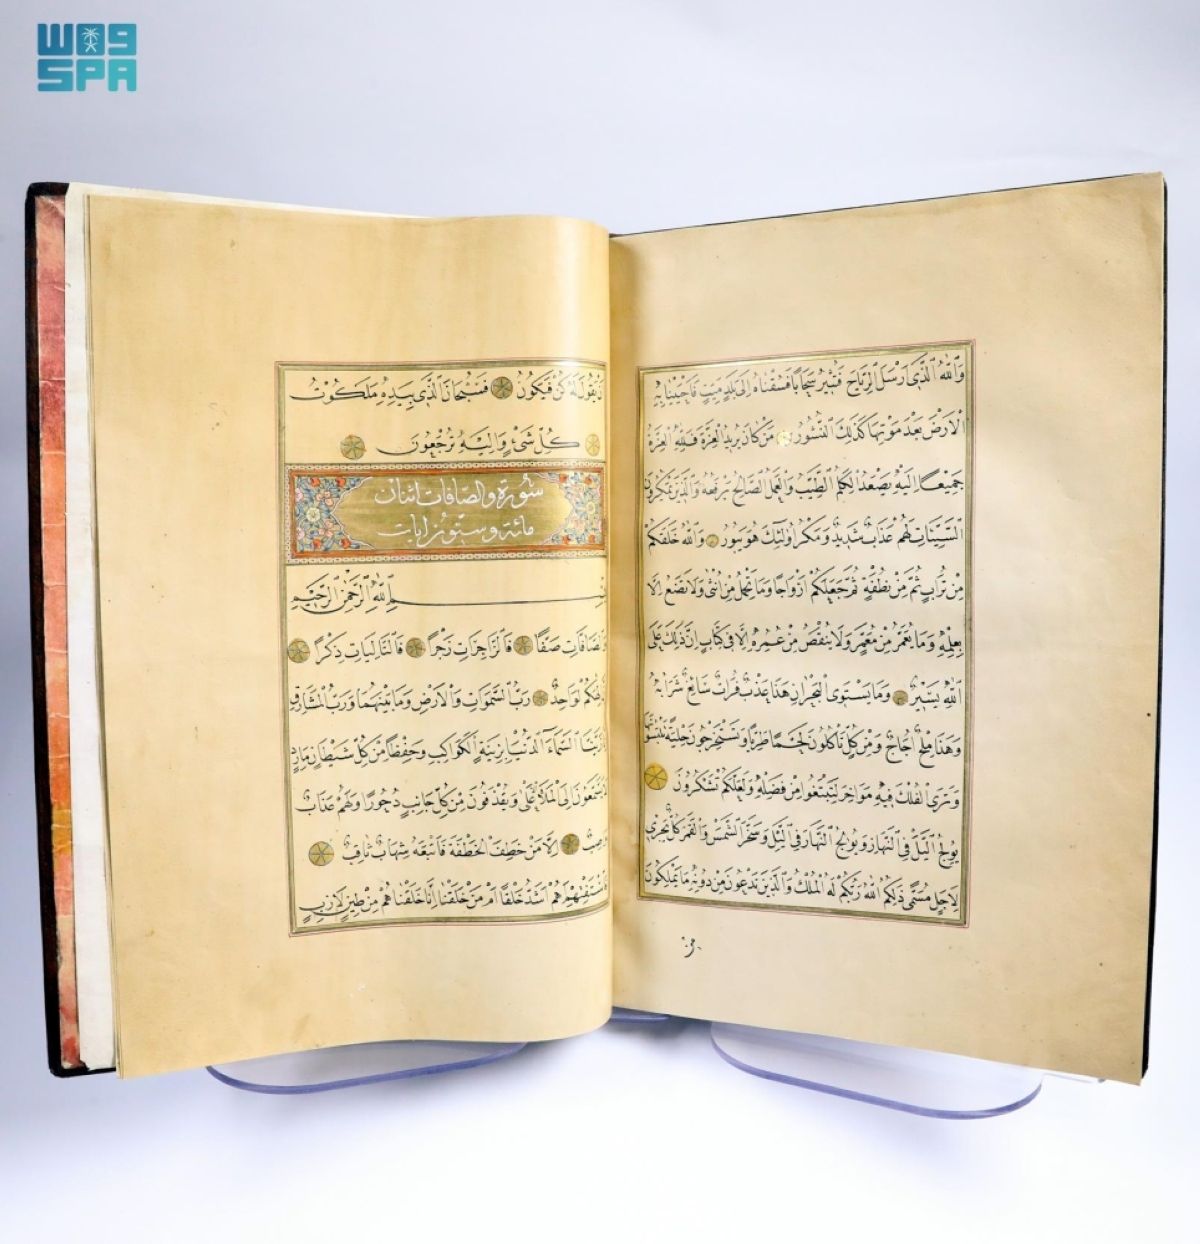 واس
SPA
وَاللّٰهُ الَّذٖى اَرْسَلَ الرِّيَاحَ فَتُثٖيرُ سَحَابًا فَسُقْنَاهُ اِلٰى بَلَدٍ مَيِّتٍ فَاَحْيَيْنَا بِهِ
الْاَرْضَ بَعْدَ مَوْتِهَا كَذٰلِكَ النُّشُورُ مَنْ كَانَ يُرٖيدُ الْعِزَّةَ فَلِلّٰهِ الْعِزَّةُ
جَمٖيعًا اِلَيْهِ يَصْعَدُ الْكَلِمُ الطَّيِّبُ وَالْعَمَلُ الصَّالِحُ يَرْفَعُهُ وَالَّذٖينَ يَمْكُرُونَ
السَّيِّئَاتِ لَهُمْ عَذَابٌ شَدٖيدٌ وَمَكْرُ اُولٰئِكَ هُوَ يَبُورُ وَاللّٰهُ خَلَقَكُمْ
مِنْ تُرَابٍ ثُمَّ مِنْ نُطْفَةٍ ثُمَّ جَعَلَكُمْ اَزْوَاجًا وَمَا تَحْمِلُ مِنْ اُنْثٰى وَلَا تَضَعُ اِلَّا
بِعِلْمِهٖ وَمَا يُعَمَّرُ مِنْ مُعَمَّرٍ وَلَا يُنْقَصُ مِنْ عُمُرِهٖ اِلَّا فٖى كِتَابٍ اِنَّ ذٰلِكَ عَلَى
اللّٰهِ يَسٖيرٌ وَمَا يَسْتَوِى الْبَحْرَانِ هٰذَا عَذْبٌ فُرَاتٌ سَائِغٌ شَرَابُهُ
وَهٰذَا مِلْحٌ اُجَاجٌ وَمِنْ كُلٍّ تَاْكُلُونَ لَحْمًا طَرِيًّا وَتَسْتَخْرِجُونَ حِلْيَةً تَلْبَسُونَهَا
وَتَرَى الْفُلْكَ فٖيهِ مَوَاخِرَ لِتَبْتَغُوا مِنْ فَضْلِهٖ وَلَعَلَّكُمْ تَشْكُرُونَ
يُولِجُ الَّيْلَ فِى النَّهَارِ وَيُولِجُ النَّهَارَ فِى الَّيْلِ وَسَخَّرَ الشَّمْسَ وَالْقَمَرَ كُلٌّ يَجْرٖى
لِاَجَلٍ مُسَمًّى ذٰلِكُمُ اللّٰهُ رَبُّكُمْ لَهُ الْمُلْكُ وَالَّذٖينَ تَدْعُونَ مِنْ دُونِهٖ مَا يَمْلِكُونَ
مِنْ
يَقُولَ لَهُ كُنْ فَيَكُونُ فَسُبْحَانَ الَّذٖى بِيَدِهٖ مَلَكُوتُ
كُلِّ شَئٍ وَاِلَيْهِ تُرْجَعُونَ
سورة والصافات اثنان
مائة وستون ايات
بِسْمِ اللّٰهِ الرَّحْمٰنِ الرَّحٖيمِ
وَالصَّافَّاتِ صَفًّا فَالزَّاجِرَاتِ زَجْرًا فَالتَّالِيَاتِ ذِكْرًا
اِلٰهَكُمْ لَوَاحِدٌ رَبُّ السَّمٰوَاتِ وَالْاَرْضِ وَمَا بَيْنَهُمَا وَرَبُّ الْمَشَارِقِ
زَيَّنَّا السَّمَاءَ الدُّنْيَا بِزٖينَةٍ الْكَوَاكِبِ وَحِفْظًا مِنْ كُلِّ شَيْطَانٍ مَارِدٍ
يَسَّمَّعُونَ اِلَى الْمَلَاِ الْاَعْلٰى وَيُقْذَفُونَ مِنْ كُلِّ جَانِبٍ دُحُورًا وَلَهُمْ عَذَابٌ
وَاصِبٌ اِلَّا مَنْ خَطِفَ الْخَطْفَةَ فَاَتْبَعَهُ شِهَابٌ ثَاقِبٌ
فَاسْتَفْتِهِمْ اَهُمْ اَشَدُّ خَلْقًا اَمْ مَنْ خَلَقْنَا اِنَّا خَلَقْنَاهُمْ مِنْ طٖينٍ لَازِبٍ